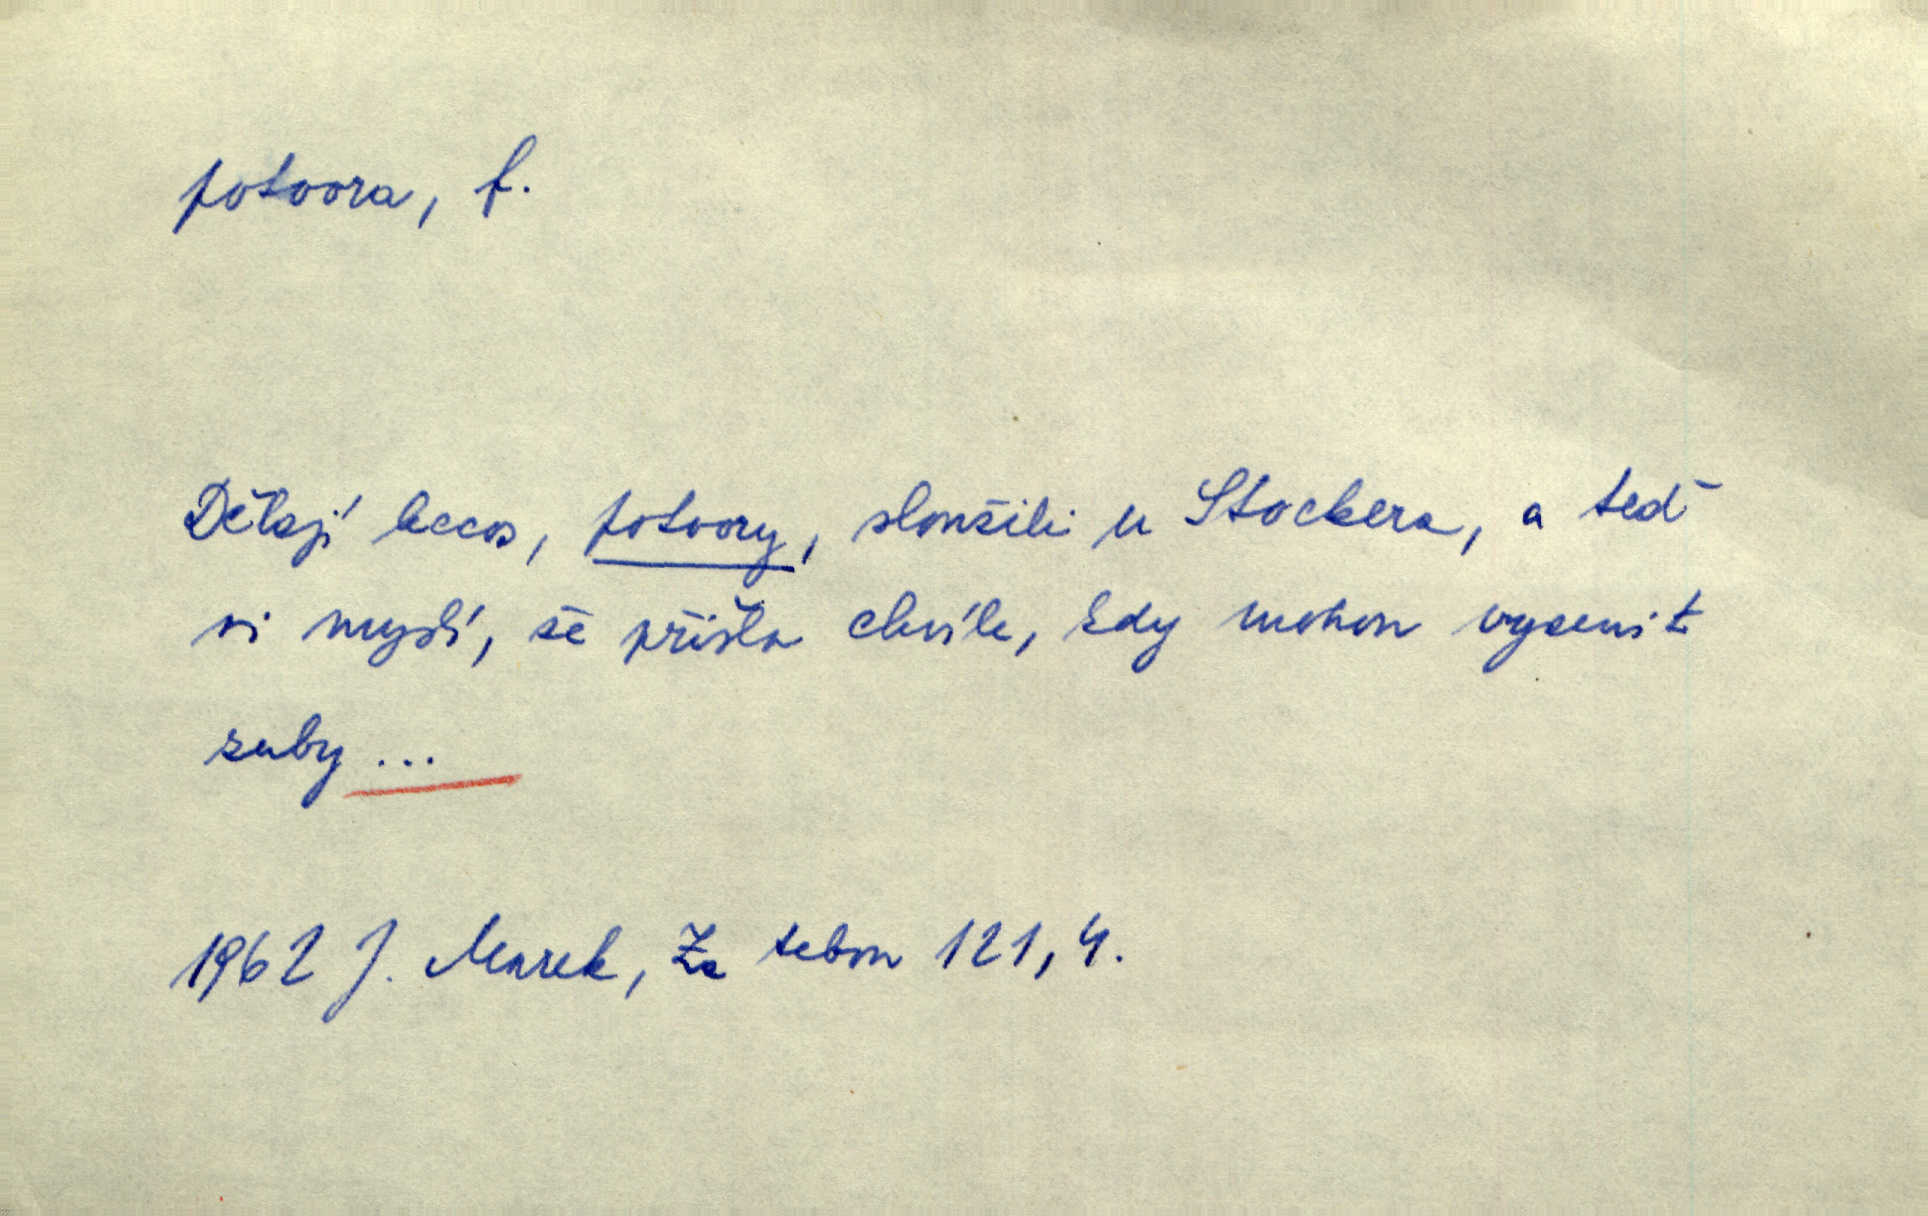 potvora, f.
Dělají leccos, potvory, sloužili u Stockera, a teď
si myslí, že přišla chvíle, kdy mohou vycenit
zuby ...
1962 J. Marek, Za tebou 121, 4.